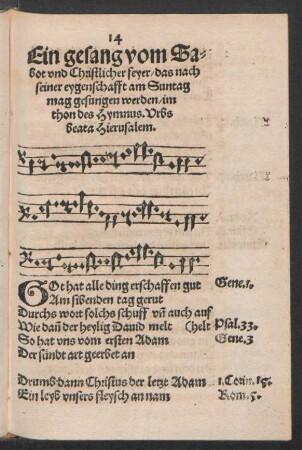 14
Ein gesang vom Sa-
bot vnd Christlicher feyer/das nach
seiner eygenschafft am Suntag
mag gesungen werden/im
thon des Hymnus. Vrbs
beata Hierusalem.
GOt hat alle ding erschaffen gut Gene.1.
Am sibenden tag gerut
Durchs wort solchs schuff vñ auch auff
Wie dañ der heylig Dauid melt (helt Psal.33.
So hat vns vom ersten Adam Gene.3
Der sündt art geerbet an
Drumb dann Christus der letzt Adam 1.Corin.15.
Ein leyb vnsers fleysch an nam Rom.5.